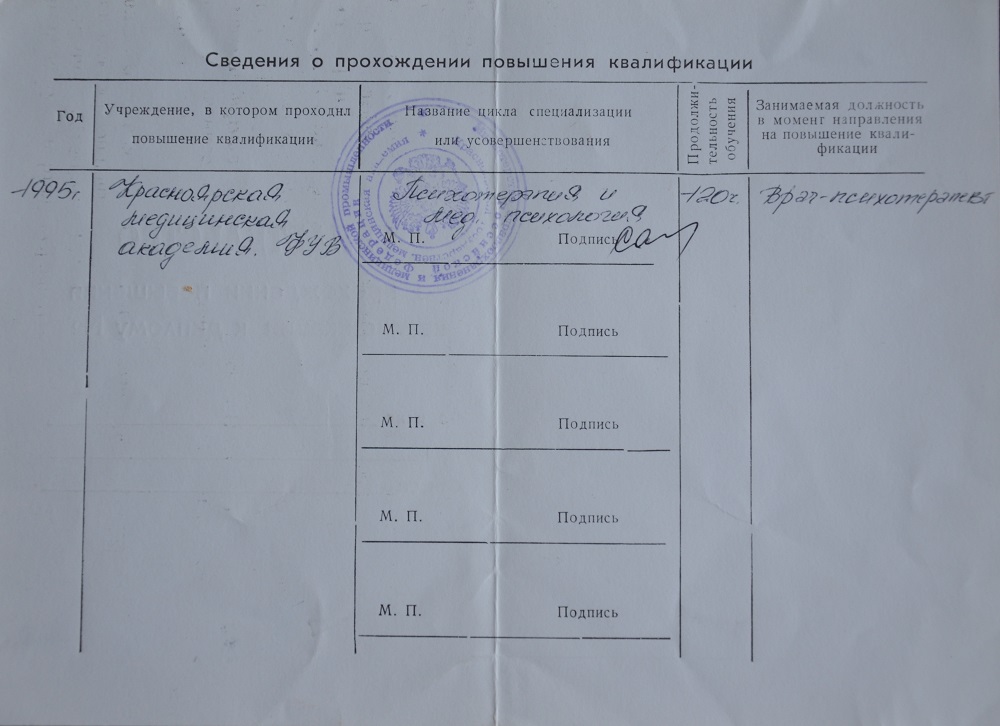 Сведения о прохождении повышения квалификации
Год
Учреждение, в котором проходил
повышение квалификации
Название цикла специализации
или усовершенствования
Продолжи-
тельность
обучения
Занимаемая должность
в момент направления
на повышение квали-
фикации
1995г.
Красноярская
медицинская
академия. ФУВ
Психотерапия и
мед. психология
120ч.
Врач-психотерапевт
М. П. Подпись
М. П. Подпись
М. П. Подпись
М. П. Подпись
М. П. Подпись